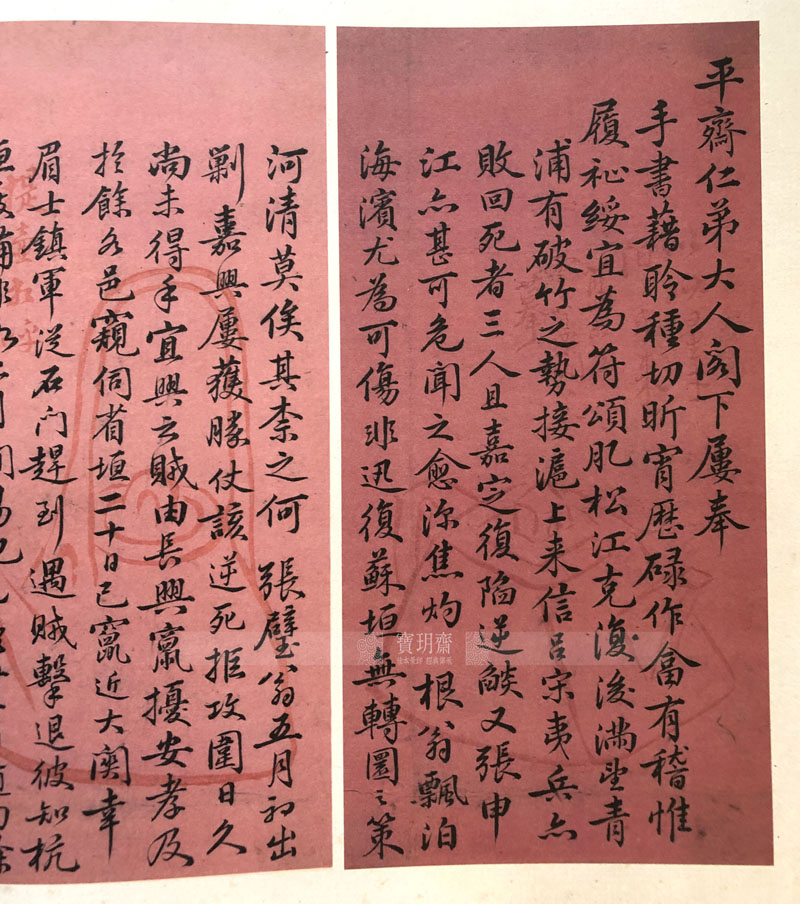 平齋仁弟大人阁下屢奉
手書藉聆種切昕宵歷碌作畣有稽惟
履祉綏宜為符頌肊松江克復後滿望青
浦有破竹之勢接滬上来信呂宋夷兵亦
敗回死者三人且嘉定復陷逆燄又張申
江亦甚可危聞之愈深焦灼根翁飄泊
海濱尤為可傷非迅復蘇垣無轉圜之策
河清莫俟其柰之何張璧翁五月初出
剿嘉興屢獲勝仗該逆死拒攻圍日久
尚未得手宜興之賊由長興竄擾安孝及
於餘各邑窺伺省垣二十日已竄近大関幸
眉士鎮軍從石门趕到遇賊擊退彼知杭
寶玥齋